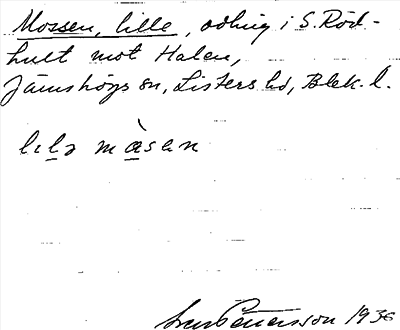 Mossen, lille, odling i S. Röd-
hult mot Halen,
Jämshögs sn, Listers hd, Blek. l.
lılə mɑ̀san
1936